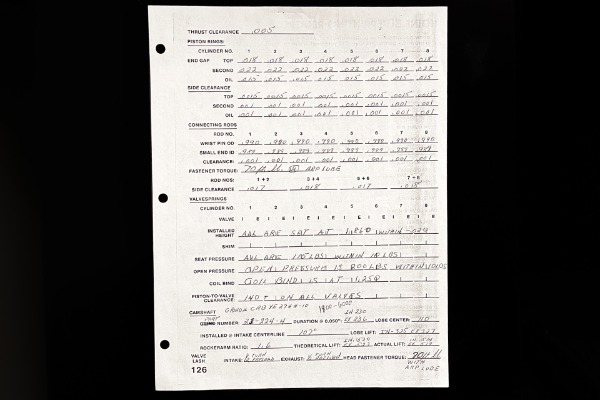 THRUST CLEARANCE .005
PISTON RINGS:
CYLINDER NO. 1 2 3 4 5 6 7 8
END GAP TOP .018 .018 .018 .018 .018 .018 .018 .018
SECOND .022 .022 .022 .022 .022 .022 .022 .022
OIL .015 .015 .015 .015 .015 .015 .015 .015
SIDE CLEARANCE
TOP .0015 .0015 .0015 .0015 .0015 .0015 .0015 .0015
SECOND .001 .001 .001 .001 .001 .001 .001 .001
OIL .001 .001 .001 .001 .001 .001 .001 .001
CONNECTING RODS
ROD NO. 1 2 3 4 5 6 7 8
WRIST PIN OD .990 .990 .990 .990 .990 .990 .990 .990
SMALL END ID .989 .989 .989 .989 .989 .989
CLEARANCE: .001 .001 .001 .001 .001 .001 .001 .001
FASTENER TORQUE: 70 ft lb ARP LUBE
ROD NOS: 1+2 3+4 5+6 7+8
SIDE CLEARANCE .017 .018 .017 .018
VALVESPRINGS
CYLINDER NO. 1 2 3 4 5 6 7 8
VALVE I E I E I E I E I E I E I E I E
INSTALLED HEIGHT ALL ARE SET AT 1.860 WITHIN
SHIM
SEAT PRESSURE ALL ARE LBS WITHIN 10 LBS
OPEN PRESSURE OPEN PRESSURE IS 300 LBS WITHIN 10 LBS
COIL BIND COIL BIND IS AT 1.250
PISTON-TO-VALVE CLEARANCE: ON ALL VALVES
CAMSHAFT 1800-6000 IN 230
NUMBER: DURATION @ 0.050": EX 236 LOBE CENTER: 110
INSTALLED @ INTAKE CENTERLINE 107° LOBE LIFT: IN-.325 EX .327
ROCKERARM RATIO: 1.6 THEORETICAL LIFT: ACTUAL LIFT:
VALVE LASH INTAKE: EXHAUST: HEAD FASTENER TORQUE: 70 ft lb
WITH
126 ARP LUBE